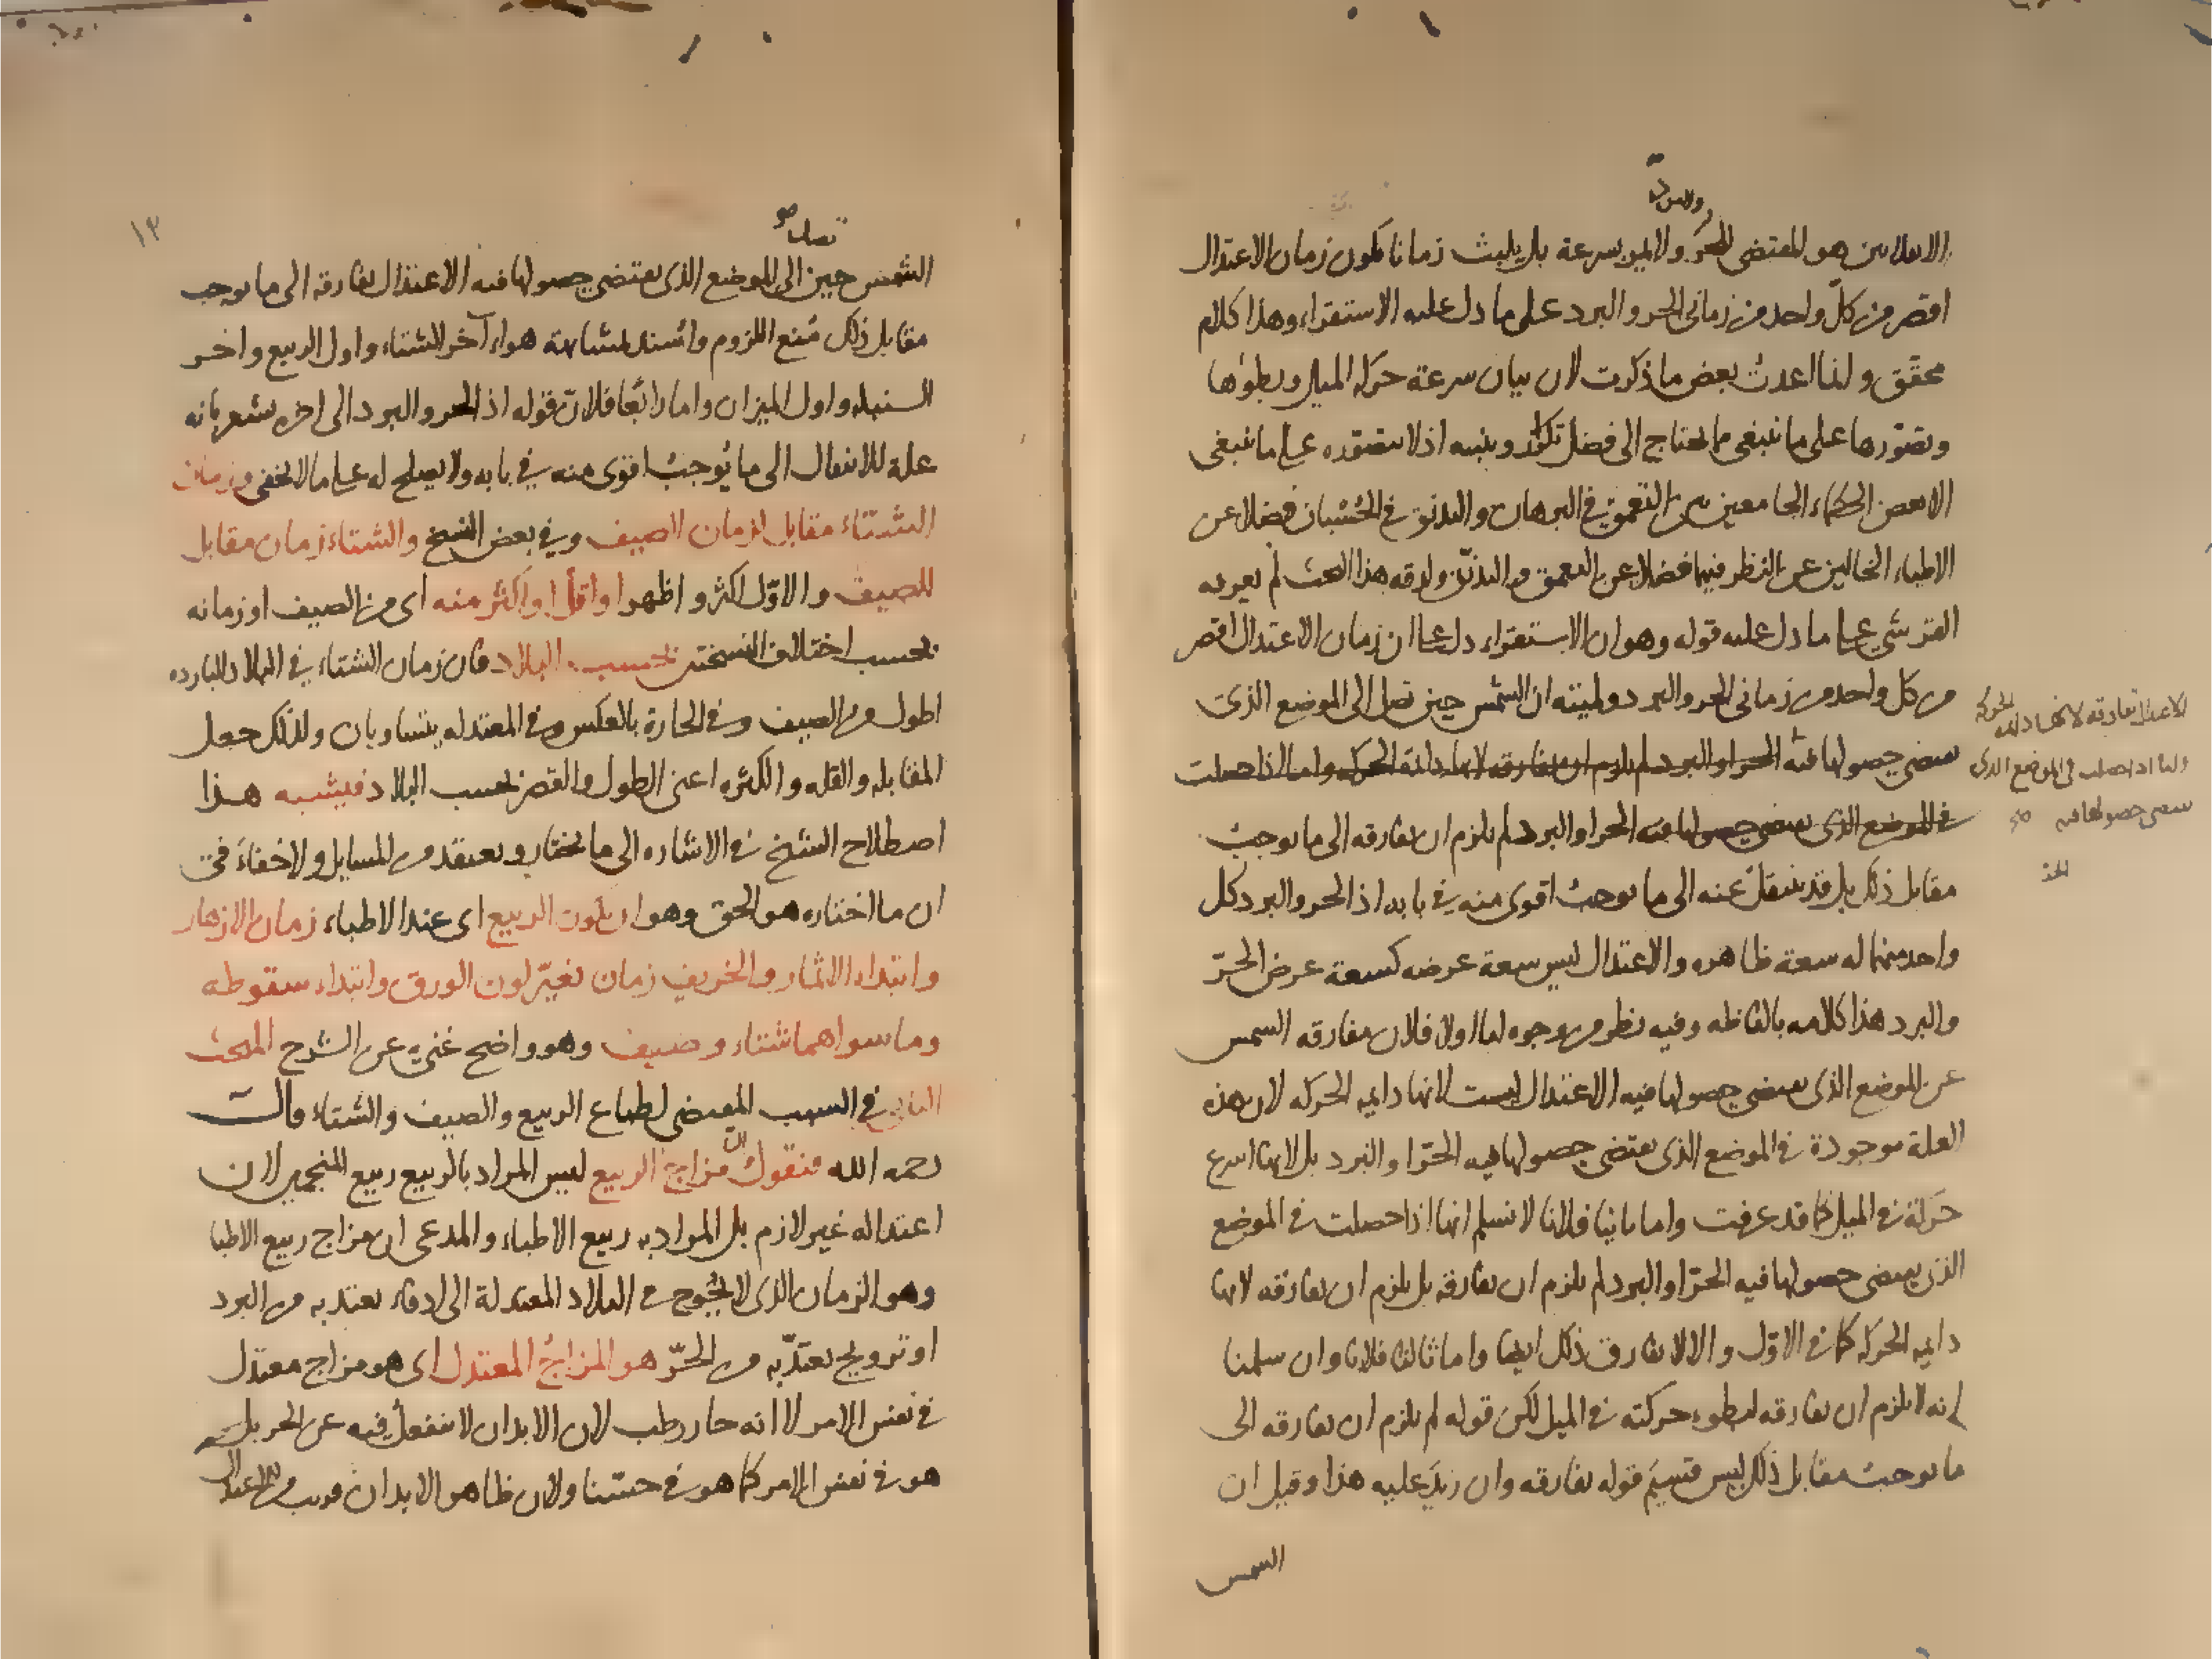 والبرد
الانقلابين هو المقتضى للحر ولا يمر بسرعة بل يلبث زمانا يكون زمان الاعتدال
اقصر من كل واحد من زمانى الحر والبرد على ما دل عليه الاستقراء وهذا كلام
محقق و انما اعدت بعض ما ذكرت لان بيان سرعة حركة الميل وبطؤها
وتصورها على ما ينبغى مما يحتاج الى فضل وتنبيه اذ لا يتصوره على ما ينبغى
الا بعض الحكماء الجامعين بين التعمق في البرهان و في الحسبان فضلا عن
الاطباء الخالين عن النظر فيهما فضلا عن التعمق و ولدقة هذا البحث لم يعرفه
القرشي على ما دل عليه قوله وهو ان الاستقراء دل على ان زمان الاعتدال اقصر
من كل واحد من زمانى الحر والبرد ولميته ان الشمس حين تصل الى الموضع الذى
يقتضى حصولها فيه الحر او البرد لم يلزم ان تفارقه لانها دائمة الحركة واما اذا حصلت
في الموضع الذى يقتضى حصولها فيه الحر او البرد لم يلزم ان تفارقه الى ما يوجب
مقابل ذلك بل قد ينتقل عنه الى ما يوجب اقوى منه في بابه اذ الحر والبرد كل
واحد منهما له سعة ظاهره والاعتدال ليس سعة عرضه كسعة عرض الحر
والبرد هذا كلامه بالفاظه وفيه نظر من وجوه اما اولا فلان مفارقه الشمس
عن الموضع الذى يقتضى حصولها فيه الاعتدال ليست لانها دايمه الحركه لان هذه
العلة موجودة في الموضع الذى يقتضى حصولها فيه الحر او البرد بل لانها اسرع
حركة في الميل كما قد عرفت واما ثانيا فلانا لا نسلم انها اذا حصلت في الموضع
الذى يقتضى حصولها فيه الحر او البرد لم يلزم ان تفارقه بل يلزم ان تفارقه لانها
دايمه الحركه كما في الاول و الا لا تفارق ذلك ايضا واما ثالثا فلانا وان سلمنا
انه لا يلزم ان تفارقه لبطوء حركته في الميل لكن قوله لم يلزم ان تفارقه الى
ما يوجب مقابل ذلك ليس قسيم قوله تفارقه وان زيد عليه هذا وقيل ان
الشمس
الاعتدال تفارقه لانها دايمه الحركه
واما اذا حصلت في الموضع الذى
يقتضى حصولها فيه صح
الحر
١٣
تصل صح
الشمس حين الى الموضع الذى يقتضى حصولها فيه الاعتدال تفارقه الى ما يوجب
مقابل ذلك منع اللزوم واسند لمشابهة هواء آخر الشتاء واول الربيع واخر
السنبله واول الميزان واما رابعا فلان قوله اذ الحر والبرد الى اخره يشعر بانه
علة للانتقال الى ما يوجب اقوى منه في بابه ولا يصلح له على ما لا يخفى وزمان
الشتاء مقابل لزمان الصيف وفي بعض النسخ والشتاء زمان مقابل
للصيف والاول اكثر و اظهر او اقل او اكثر منه اى من الصيف او زمانه
بحسب اختلاف النسختين بحسب البلاد فان زمان الشتاء في البلاد البارده
اطول من الصيف وفي الحارة بالعكس وفي المعتدله يتساويان ولذلك جعل
المقابله والقله والكثره اعنى الطول والقصر بحسب البلاد فيشبه هذا
اصطلاح الشيخ في الاشاره الى ما يختاره ويعتقده من المسايل ولا خفاء في
ان ما اختاره هو الحق وهو ان يكون الربيع اى عند الاطباء زمان الازهار
وابتداء الاثمار والخريف زمان تغير لون الورق وابتداء سقوطه
وما سواهما شتاء وصيف وهو واضح غنى عن الشرح المبحث
الثانى في السبب المقتضى لطباع الربيع والصيف والشتاء قال
رحمه الله فنقول ان مزاج الربيع ليس المراد بالربيع ربيع المنجمين لان
اعتداله غير لازم بل المراد به ربيع الاطباء والمدعى ان مزاج ربيع الاطبا
وهو الزمان الذى لا يحوج في البلاد المعتدلة الى ادفاء يعتد به من البرد
او ترويح يعتد به من الحر هو المزاج المعتدل اى هو مزاج معتدل
في نفس الامر لا انه حار رطب لان الابدان لا تنفعل فيه عن الحر بل
هو في نفس الامر كما هو في حسنا ولان ظاهر الابدان قريب من الاعتدال